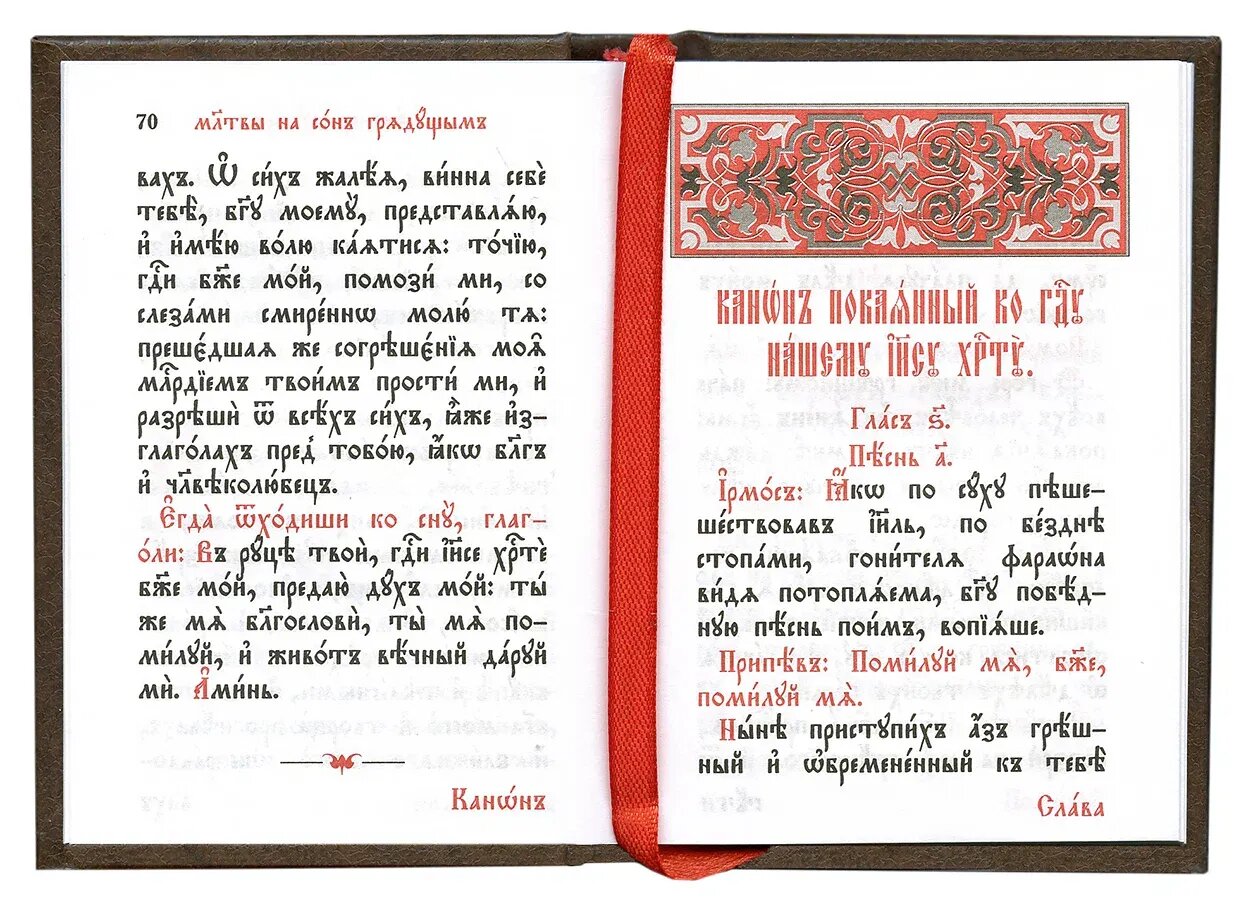 70 мл҃твы на со́нъ грѧдꙋ́щымъ
вахъ. Ѿ си́хъ жалѣ́ѧ, ви́нна себѐ
тебѣ̀, бг҃ꙋ моемꙋ̀, представлѧ́ю,
и҆ и҆мѣ́ю во́лю ка́ѧтисѧ: то́чїю,
гдⷭ҇и бж҃е мо́й, помози́ ми, со
слеза́ми смире́ннѡ молю́ тѧ:
преше́дшаѧ же согрѣшє́нїѧ моѧ̑
млⷭ҇рдїемъ твои́мъ прости́ ми, и҆
разрѣшѝ ѿ всѣ́хъ си́хъ, ꙗ҆̀же и҆з-
глаго́лахъ пред̾ тобо́ю, ꙗ҆́кѡ бл҃гъ
и҆ чл҃вѣколю́бецъ.
Е҆гда̀ ѿхо́диши ко снꙋ̀, глаг-
о́ли: Въ рꙋ́цѣ твоѝ, гдⷭ҇и і҆и҃се хрⷭ҇тѐ
бж҃е мо́й, предаю̀ дꙋ́хъ мо́й: ты́
же мѧ̀ блг҃ословѝ, ты̀ мѧ̀ по-
ми́лꙋй, и҆ живо́тъ вѣ́чный да́рꙋй
мѝ. А҆ми́нь.
Кано́нъ
Канѡ́нъ покаѧ́нный ко гдⷭ҇ꙋ
на́шемꙋ і҆и҃сꙋ хрⷭ҇тꙋ̀.
Гла́съ ѕ҃.
Пѣ́снь а҃.
І҆рмо́съ: Ꙗ҆́кѡ по сꙋ́хꙋ пѣше-
ше́ствовавъ і҆и҃ль, по бе́зднѣ
стопа́ми, гони́телѧ фараѡ́на
ви́дѧ потоплѧ́ема, бг҃ꙋ побѣ́д-
нꙋю пѣ́снь пои́мъ, вопїѧ́ше.
Припѣ́въ: Поми́лꙋй мѧ̀, бж҃е,
поми́лꙋй мѧ̀.
Ны́нѣ пристꙋпи́хъ а҆́зъ грѣ́ш-
ный и҆ ѡ҆бремене́нный къ тебѣ̀
Сла́ва